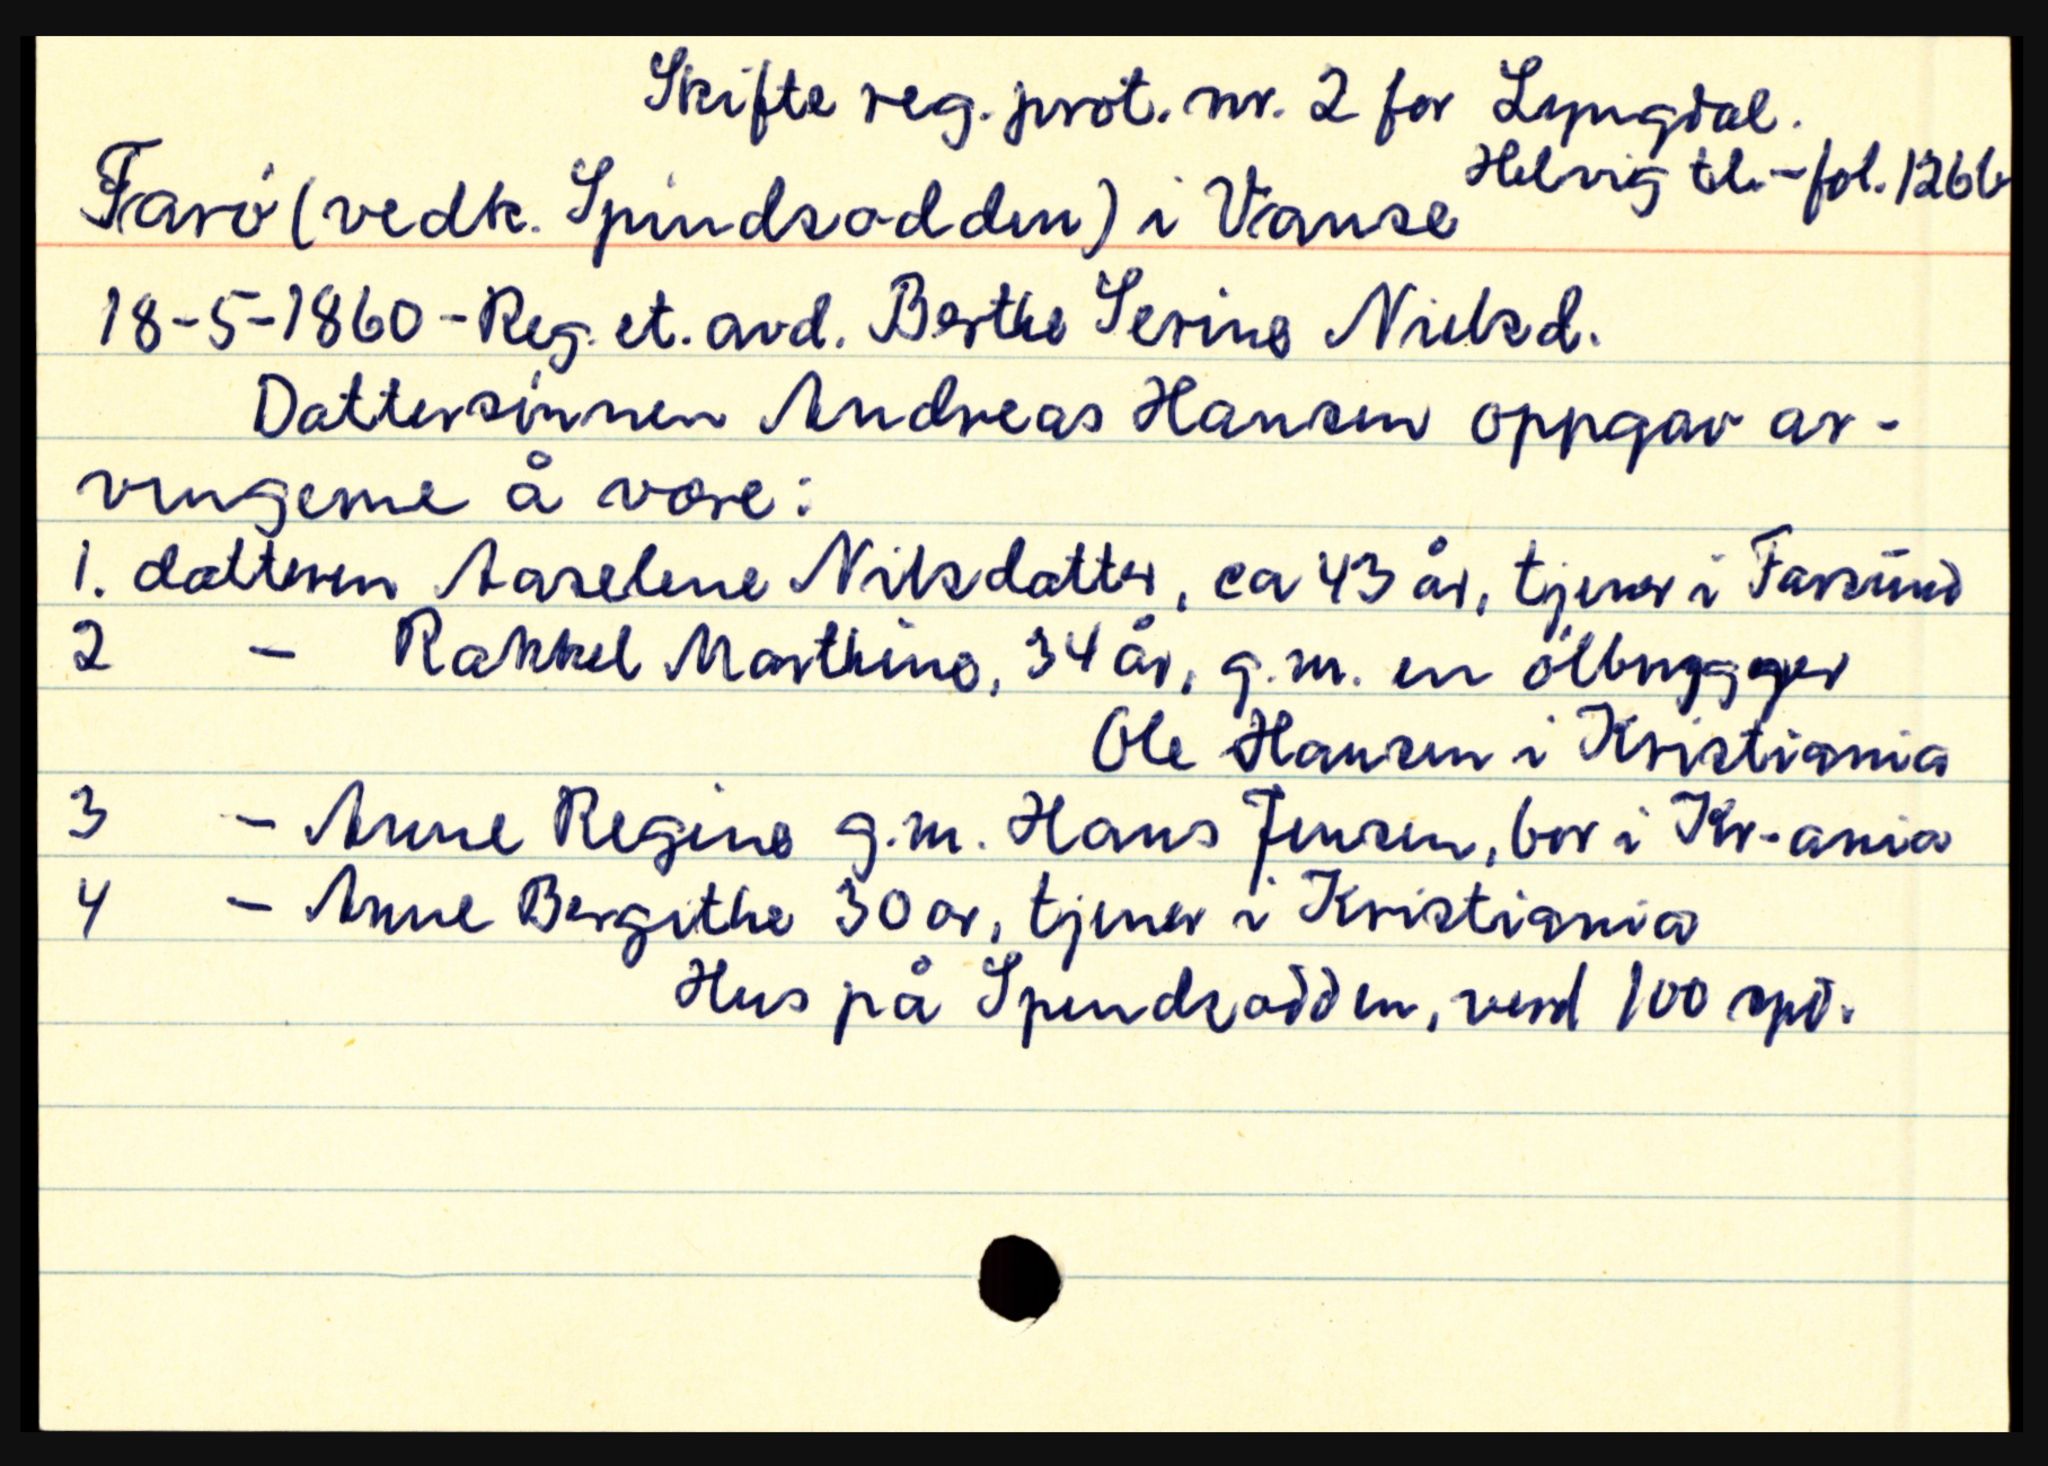 Skifte reg. prot. nr. 2 for Lyngdal.
Helvig tl. - fol. 126b
Farö (vedk. Spindsodden) i Vanse
18-5-1860 - Reg. et. avd. Berthe Serine Nielsd.
Dattersönnen Andreas Hansen oppgav ar-
vingerne å være:
1. datteren Aaselene Nilsdatter, ca 43 år, tjener i Farsund
2 - Rakkel Marthine, 34 år, g.m. en ölbrygger
Ole Hansen i Kristiania
3 - Anne Regine g.m. Hans Jensen, bor i Kr-ania
4 - Anne Bergithe 30 år, tjener i Kristiania
Hus på Spindsodden, verd 100 spd.